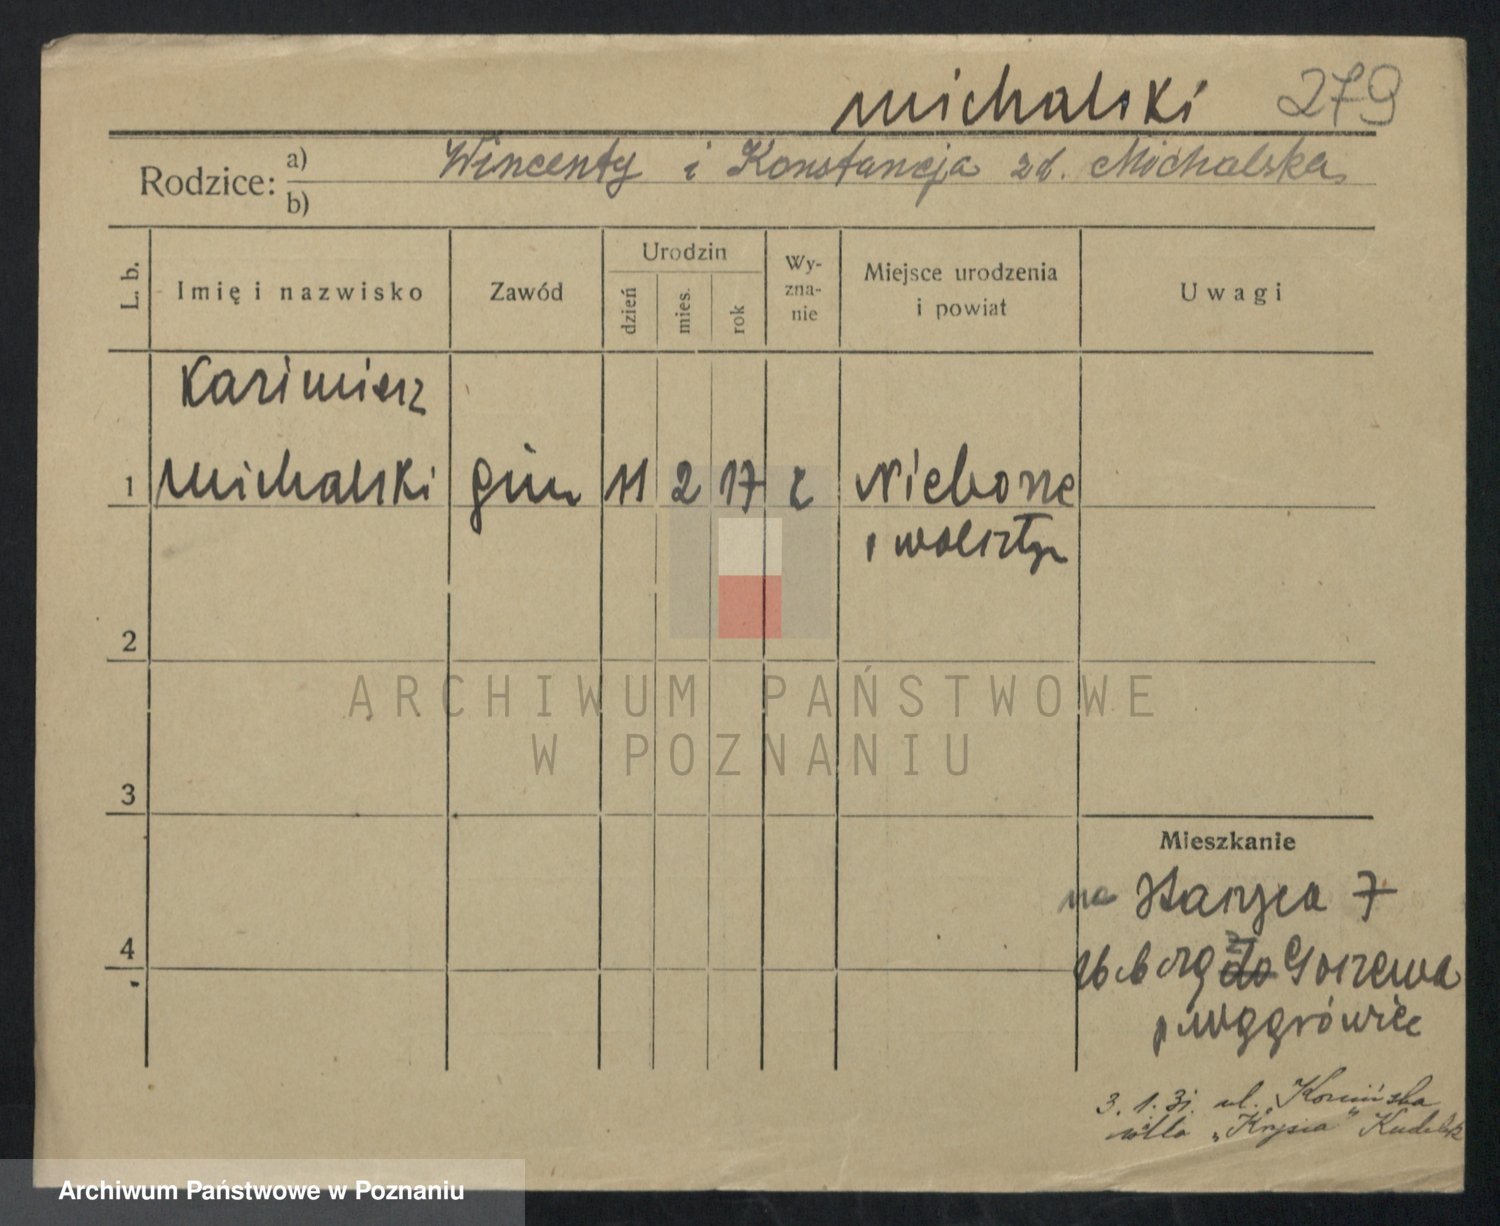 Michalski 279
Rodzice: a) Wincenty i Konstancja zd. Michalska
b)
L. b. Imię i nazwisko Zawód Urodzin dzień mies. rok Wy-zna-nie Miejsce urodzenia i powiat Uwagi
Kazimierz
1 Michalski gim 11 2 17 r Nieborze
p Wolsztyn
2
ARCHIWUM PAŃSTWOWE
W POZNANIU
3
Mieszkanie
na Staszyca 7
4
z Gorzewa
p wągrówiec
3.1.31. ul.
willa "Krysia"
Archiwum Państwowe w Poznaniu